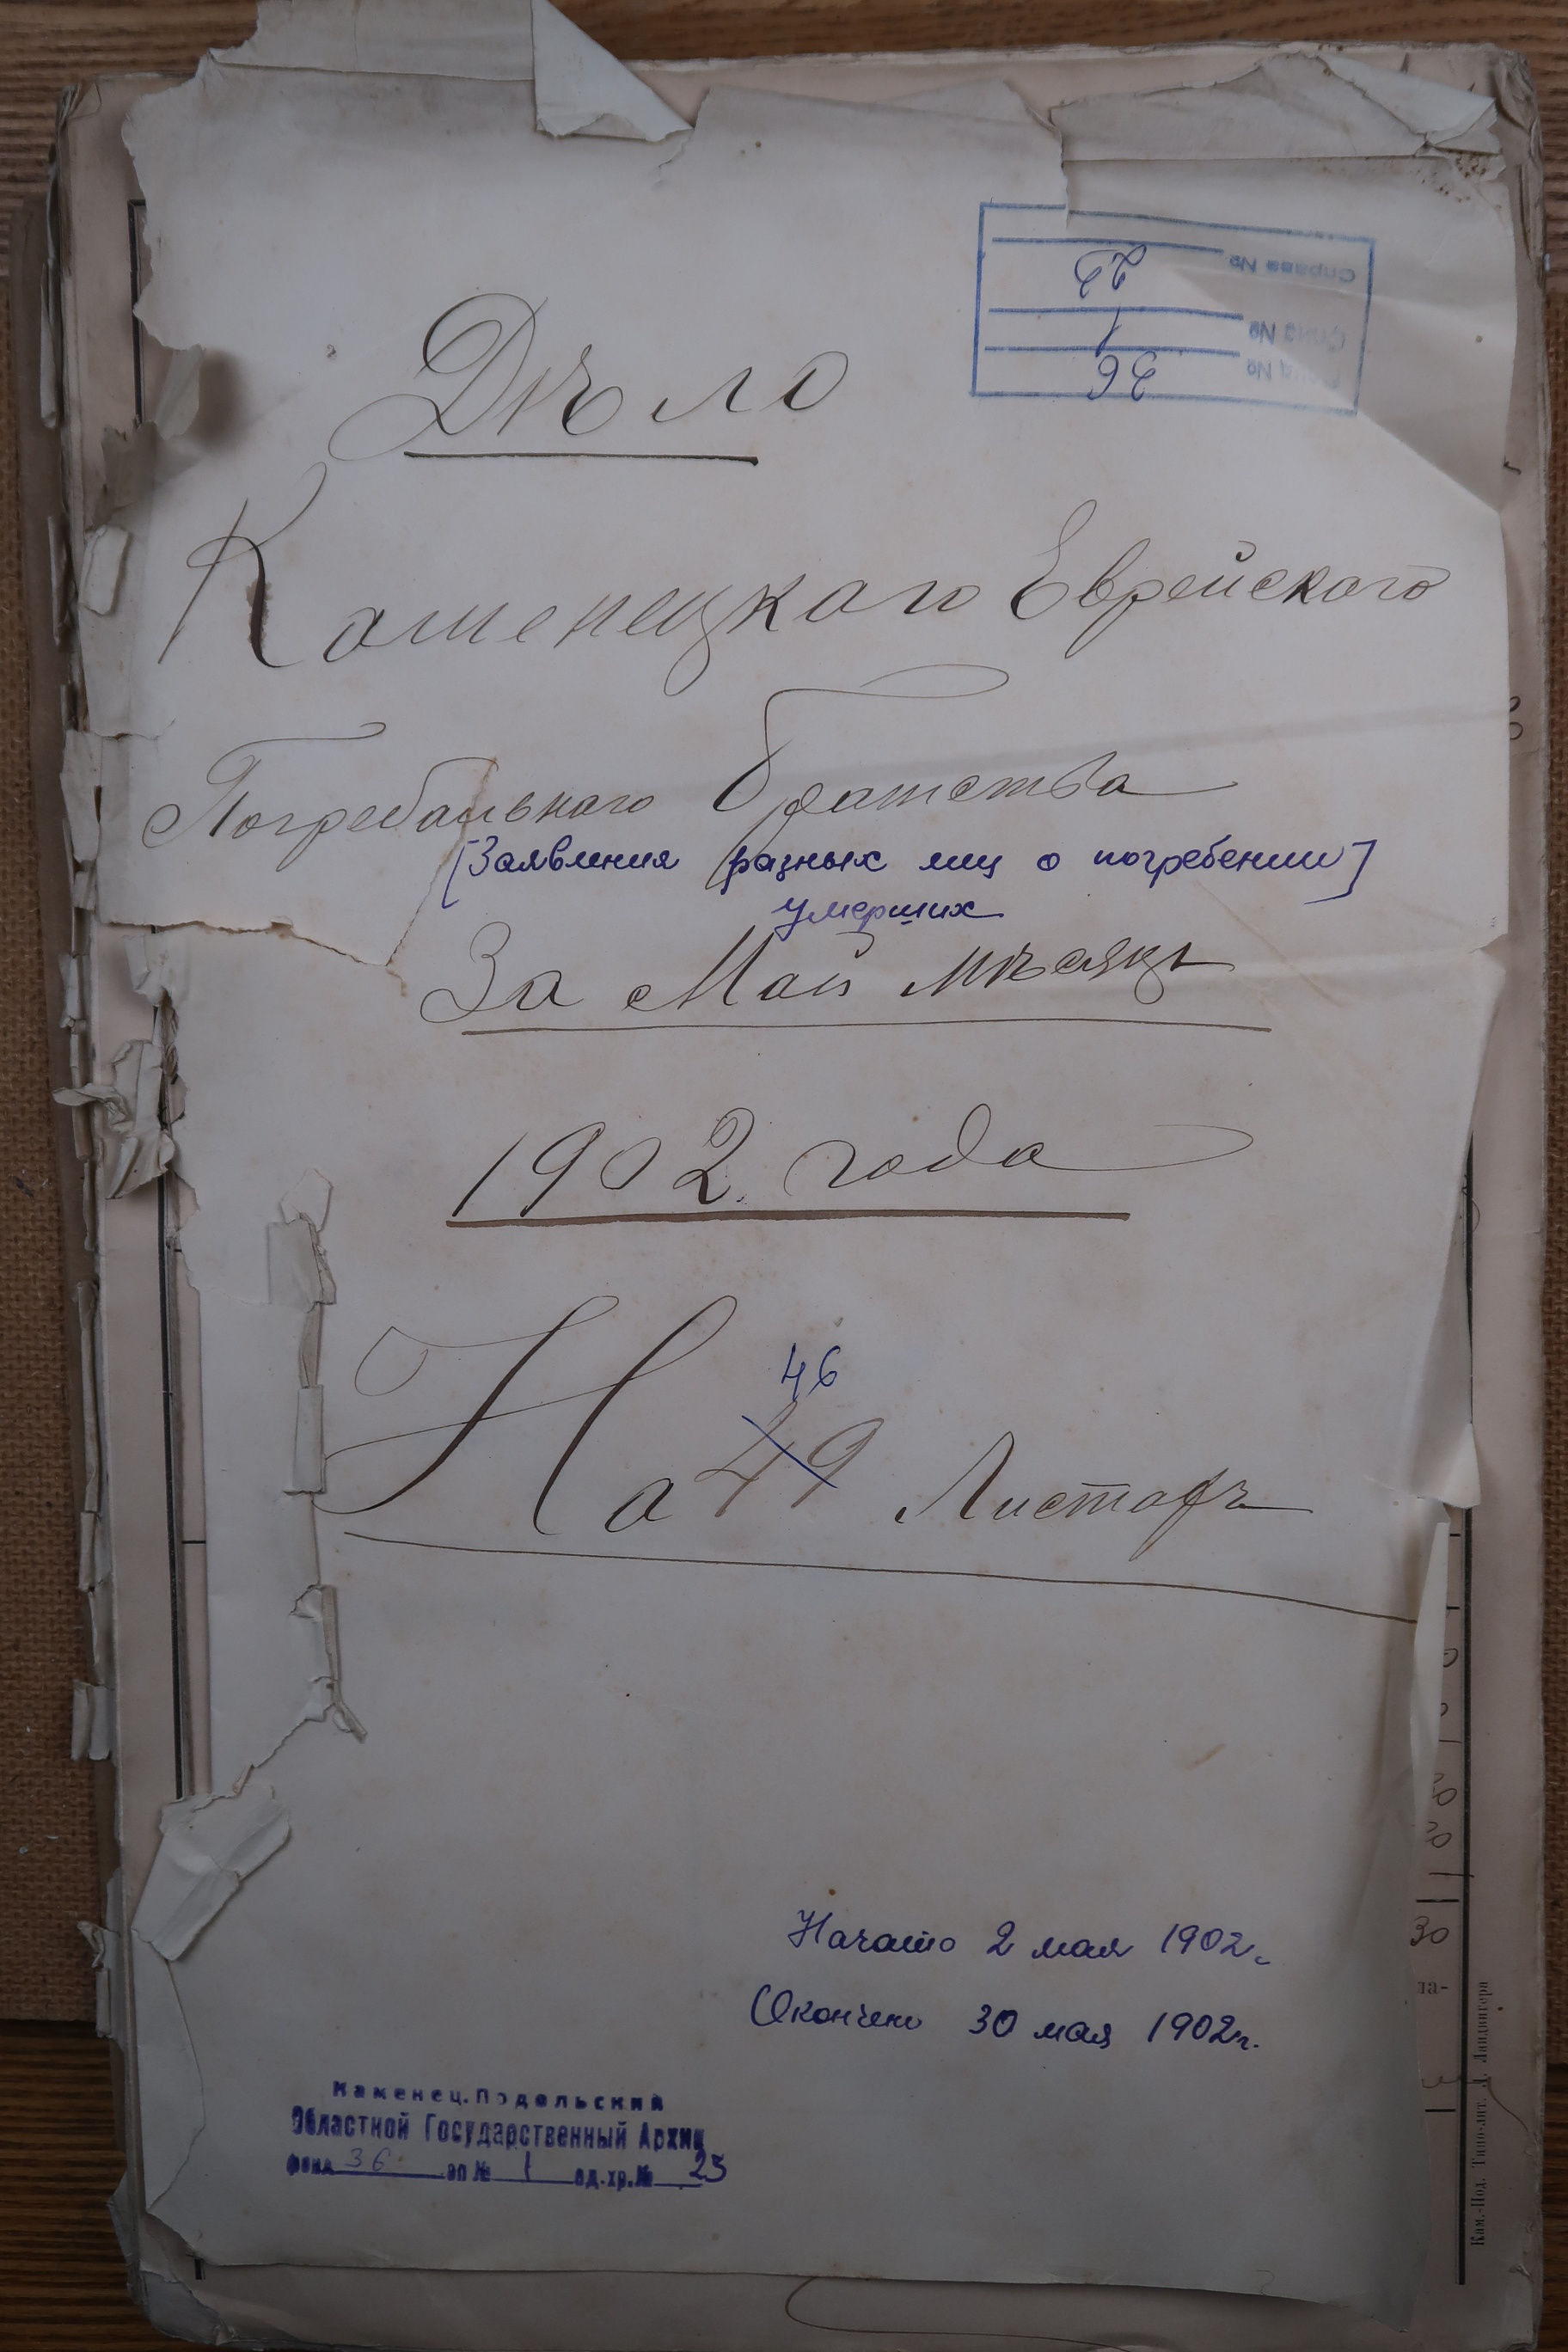 Справа № 25
Опис № 1
Фонд № 36
Дѣло
Каменецкаго Еврейскаго
Погребальнаго братства
[Заявления разных лиц о погребении]
умерших
За Май мѣсяцъ
1902 года
46
На 49 Листахъ
Начато 2 мая 1902г.
Окончено 30 мая 1902г.
Каменец.Подольский
Областной Государственный Архив
фонд 36 оп № 1 ед.хр.№ 25
30
ла-
Кам.-Под. Типо-лит. Л. Ландвигера